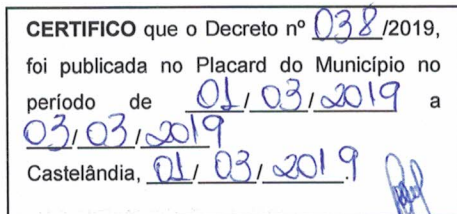 CERTIFICO que o Decreto nº 038/2019,
foi publicada no Placard do Município no
período de 01/03/2019 a
03/03/2019
Castelândia, 01/03/2019.